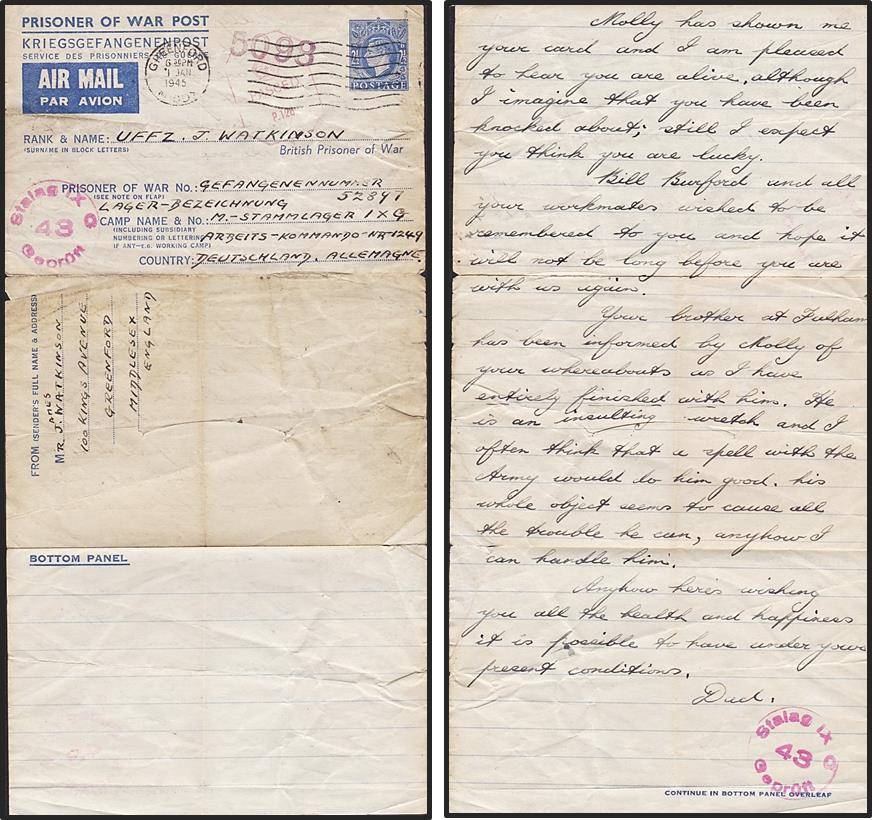 PRISONER OF WAR POST
KRIEGSGEFANGENENPOST
SERVICE DES PRISONNIERS
AIR MAIL
PAR AVION
GREENFORD
6 PM
1 JAN
1945
MIDDX
5098
P.128
2½D
POSTAGE
RANK & NAME: UFFZ. J. WATKINSON
(SURNAME IN BLOCK LETTERS)
British Prisoner of War
PRISONER OF WAR No.: GEFANGENENNUMMER
(SEE NOTE ON FLAP) 52897
LAGER-BEZEICHNUNG
CAMP NAME & No.: M.-STAMMLAGER IXC
(INCLUDING SUBSIDIARY
NUMBERING OR LETTERING ARBEITS-KOMMANDO-NR-1249
IF ANY—E.G. WORKING CAMP)
COUNTRY: DEUTSCHLAND. ALLEMAGNE.
Stalag IX
43
Geprüft
FROM (SENDER'S FULL NAME & ADDRESS)
MR JAMES WATKINSON
100 KINGS AVENUE
GREENFORD
MIDDLESEX
ENGLAND
BOTTOM PANEL
Molly has shown me
your card and I am pleased
to hear you are alive, although
I imagine that you have been
knocked about; still I expect
you think you are lucky.
Bill Burford and all
your workmates wished to be
remembered to you and hope it
will not be long before you are
with us again.
Your brother at Fulham
has been informed by Molly of
your whereabouts as I have
entirely finished with him. He
is an insulting wretch and I
often think that a spell with the
Army would do him good. his
whole object seems to cause all
the trouble he can, anyhow I
can handle him.
Anyhow here's wishing
you all the health and happiness
it is possible to have under your
present conditions.
Dad.
Stalag IX
43
Geprüft
CONTINUE IN BOTTOM PANEL OVERLEAF